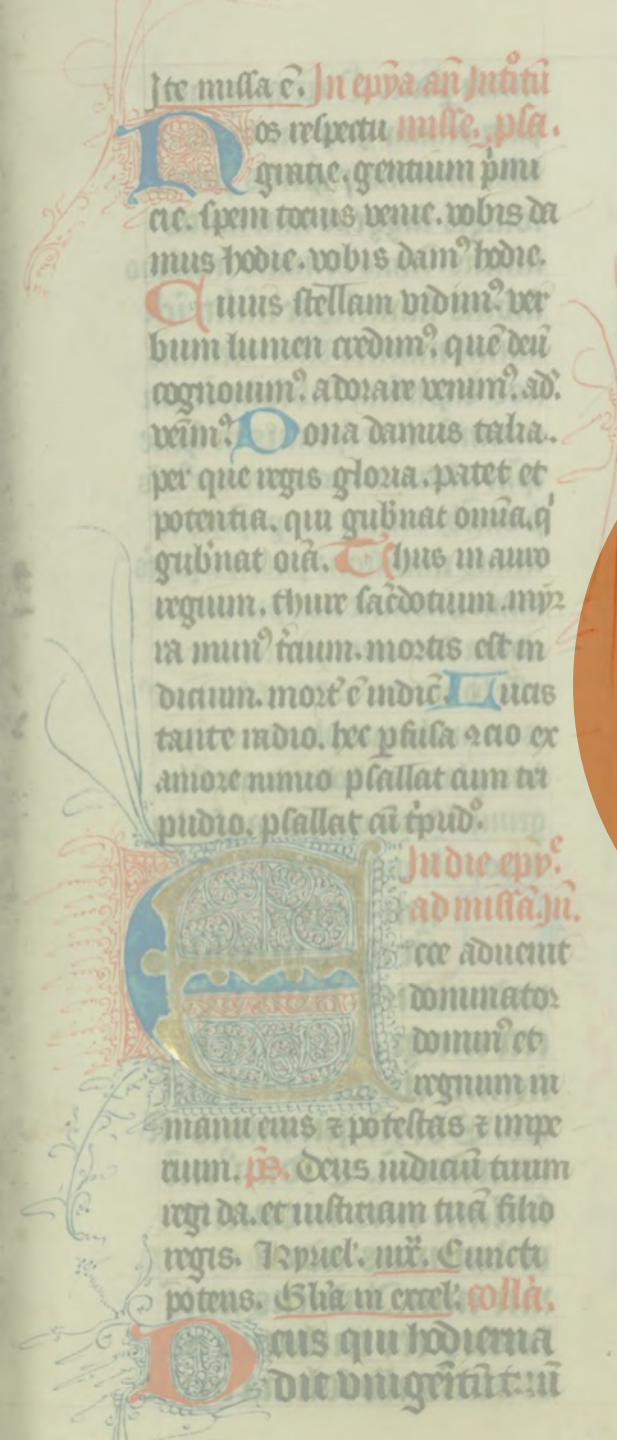 Ite missa ē. In epyā an̄ Introitū
Nos respectu misse. psa.
gratie. gentium pͥmi
cie. spem tocius venie. vobis da
mus hodie. vobis damꝰ hodie.
Cuius stellam vidimꝰ. ver
bum lumen credimꝰ, quē deū
cognouimꝰ. adorare venimꝰ. ad.
veīmꝰ. Dona damus talia.
per que regis gloria. patet et
potentia. qui gub̄nat omīa. qͥ
gub̄nat oīā. Thus in auro
regium. thure sac̄dotium. myr
ra munꝰ t̄cium. mortis est in
dicium. mort̄ ē indic̄. Lucis
tante radio. hec ꝑfusa ꝯcio ex
amore nimio psallat cum tri
pudio. psallat cū tͥpudᵒ.
In die epyᵉ.
ad missā. In̄.
Ecce aduenit
dominator
dominꝰ et
regnum in
manu eius ⁊ potestas ⁊ impe
rium. p̄s. Deus iudiciū tuum
regi da. et iusticiam tuā filio
regis. Kyriel'. mr̄. Cuncti
potens. Gl̄ia in excel'. collā.
Deus qui hodierna
die vnigenitū tuū